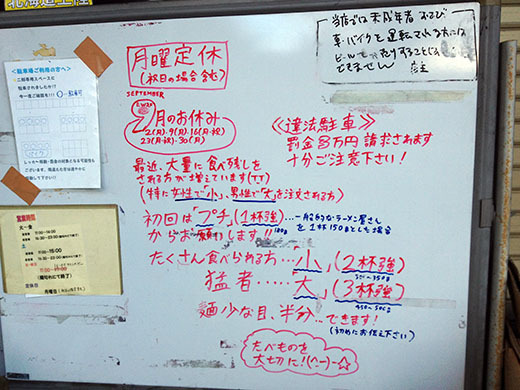 北海道上陸
当店では未成年者および
車・バイクを運転される方には
ビールをお売りすることは
できません 店主
月曜定休
(祝日の場合含む)
SEPTEMBER
月のお休み
2(月)・9(月)・16(月・祝)
23(月・祝)・30(月)
≪違法駐車≫
罰金3万円請求されます
十分ご注意下さい!
最近、大量に食べ残しを
される方が増えています(T.T)
(特に女性で「小」、男性で「大」を注文される方)
初回は「プチ」(1杯強)…一般的なラーメン屋さん
を1杯150gとした場合
からお願いします!!
180g
たくさん食べられる方…「小」(2杯強)
猛者……「大」(3杯強)
麺少な目、半分…できます!
(初めにお伝え下さい)
たべものを
大切に!(^-^)-☆
駐車場ご利用の方へ
営業時間
火~金
土
定休日
月曜日